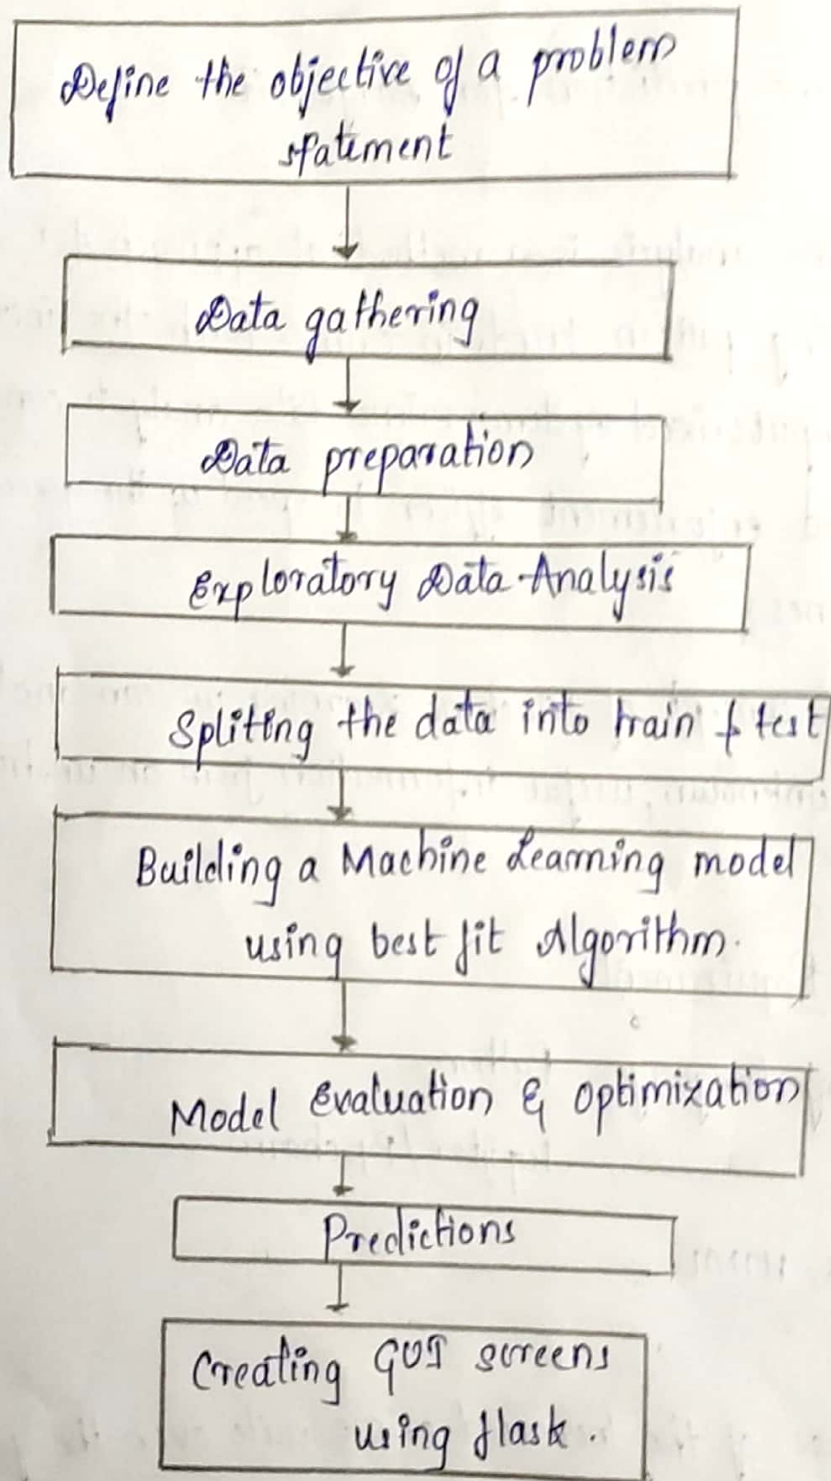 Define the objective of a problem
statement
Data gathering
Data preparation
Exploratory Data Analysis
Spliting the data into train & test
Building a Machine Learning model
using best fit Algorithm.
Model Evaluation & Optimization
Predictions
Creating GUI screens
using flask.